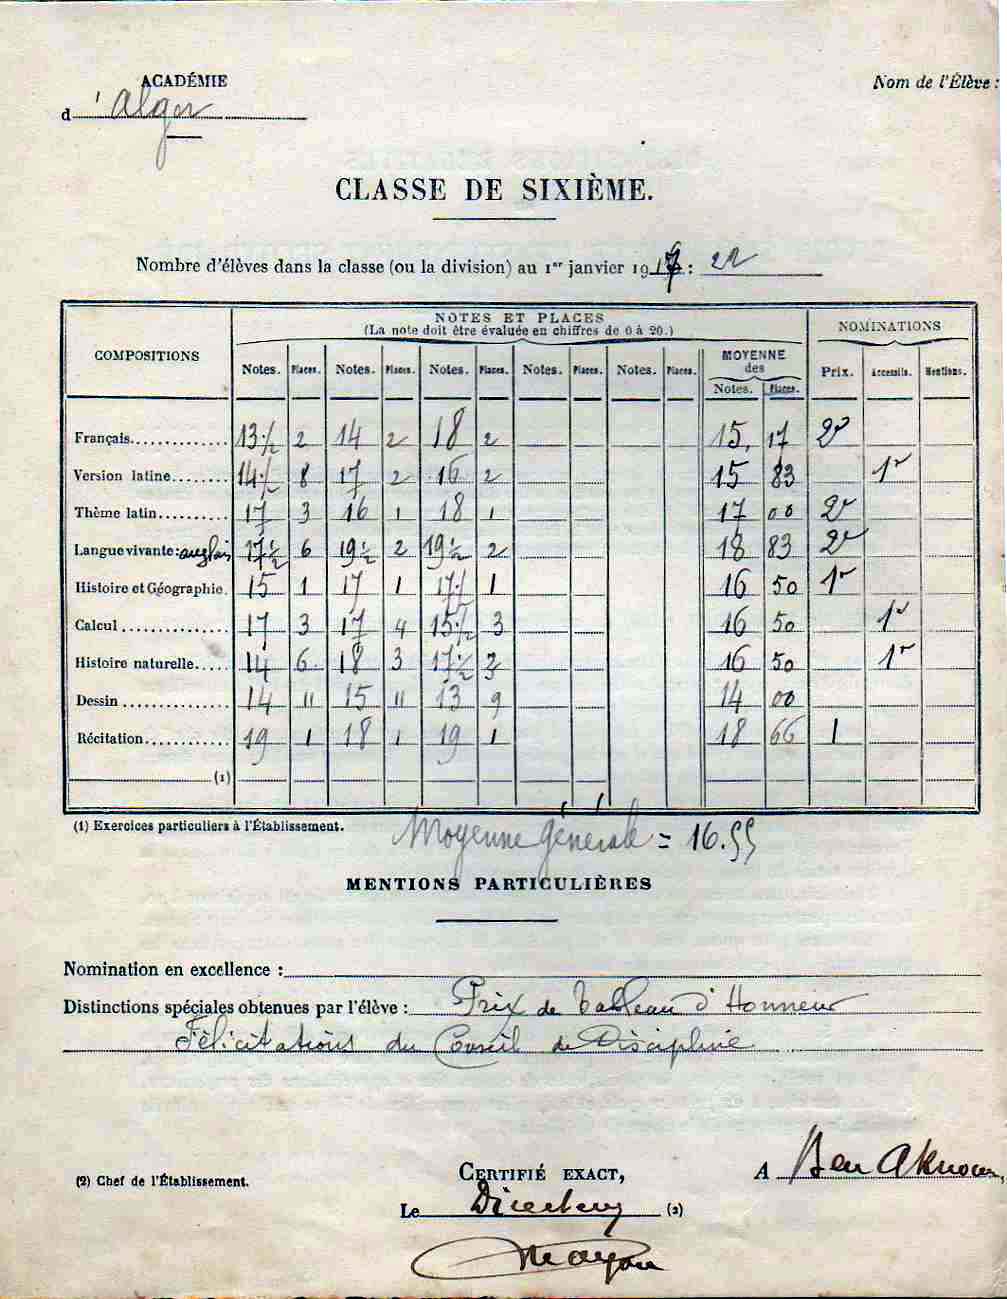 ACADÉMIE
Nom de l'Élève :
d'Alger
CLASSE DE SIXIÈME.
Nombre d'élèves dans la classe (ou la division) au 1er janvier 19 : 22
COMPOSITIONS NOTES ET PLACES NOMINATIONS
(La note doit être évaluée en chiffres de 0 à 20.)
MOYENNE des
Notes. Places. Notes. Places. Notes. Places. Notes. Places. Notes. Places. Notes. Places. Prix. Accessits. Mentions.
Français 13 1/2 2 14 2 18 2 15, 17 2e
Version latine 14 1/2 8 17 2 16 2 15 83 1er
Thème latin 17 3 16 1 18 1 17 00 2e
Langue vivante: anglais 17 1/2 6 19 1/2 2 19 1/2 2 18 83 2e
Histoire et Géographie. 15 1 17 1 17 1/2 1 16 50 1er
Calcul 17 3 17 4 15 1/2 3 16 50 1er
Histoire naturelle 14 6 18 3 17 1/2 16 50 1er
Dessin 14 11 15 11 13 9 14 00
Récitation 19 1 18 1 19 1 18 66 1
(1)
(1) Exercices particuliers à l'Établissement.
Moyenne générale = 16.55
MENTIONS PARTICULIÈRES
Nomination en excellence :
Distinctions spéciales obtenues par l'élève : Prix de Tableau d'Honneur
Félicitations du Conseil de Discipline
CERTIFIÉ EXACT, A Ben Aknoun,
(2) Chef de l'Établissement.
Le Directeur (2)